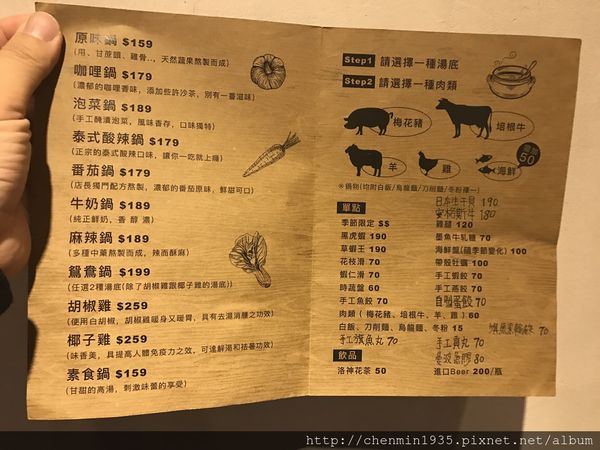 原味鍋 $159
甘蔗頭、雞骨..，天然蔬果熬製而成)
咖哩鍋 $179
(濃郁的咖哩香味，添加些許沙茶，別有一番滋味)
泡菜鍋 $189
(手工醃漬泡菜，風味香存，口味獨特)
泰式酸辣鍋 $179
(正宗的泰式酸辣口味，讓你一吃就上癮)
番茄鍋 $179
(店長獨門配方熬製，濃郁的番茄原味，鮮甜可口)
牛奶鍋 $189
(純正鮮奶，香 醇 濃)
麻辣鍋 $189
(多種中藥熬製而成，辣而酥麻)
鴛鴦鍋 $199
(任選2種湯底(除了胡椒雞跟椰子雞的湯底))
胡椒雞 $259
(使用白胡椒，胡椒雞暖身又暖胃，具有去濕消腫之功效)
椰子雞 $259
(味香美，具提高人體免疫力之效，可達解渴和祛暑功效)
素食鍋 $159
(甘甜的高湯，刺激味蕾的享受)
Step1 請選擇一種湯底
Step2 請選擇一種肉類
梅花豬
培根牛
羊
雞
海鮮
50
※鍋物(均附白飯/烏龍麵/刀削麵/冬粉擇一)
單點
日本生干貝 190
180
季節限定 $$
雞腿 120
黑虎蝦 190
墨魚牛軋糖 70
草蝦王 190
海鮮盤(隨季節變化) 100
花枝滑 70
帶殼牡蠣 100
蝦仁滑 70
手工蝦餃 70
時蔬盤 60
手工燕餃 70
手工魚餃 70
自製蛋餃 70
肉類 ( 梅花豬、培根牛、羊、雞 ) 60
白飯、刀削麵、烏龍麵、冬粉 15
70
手工旗魚丸 70
手工貢丸 70
飲品
80
洛神花茶 50
進口Beer 200/瓶
http://chenmin1935.pixnet.net/album